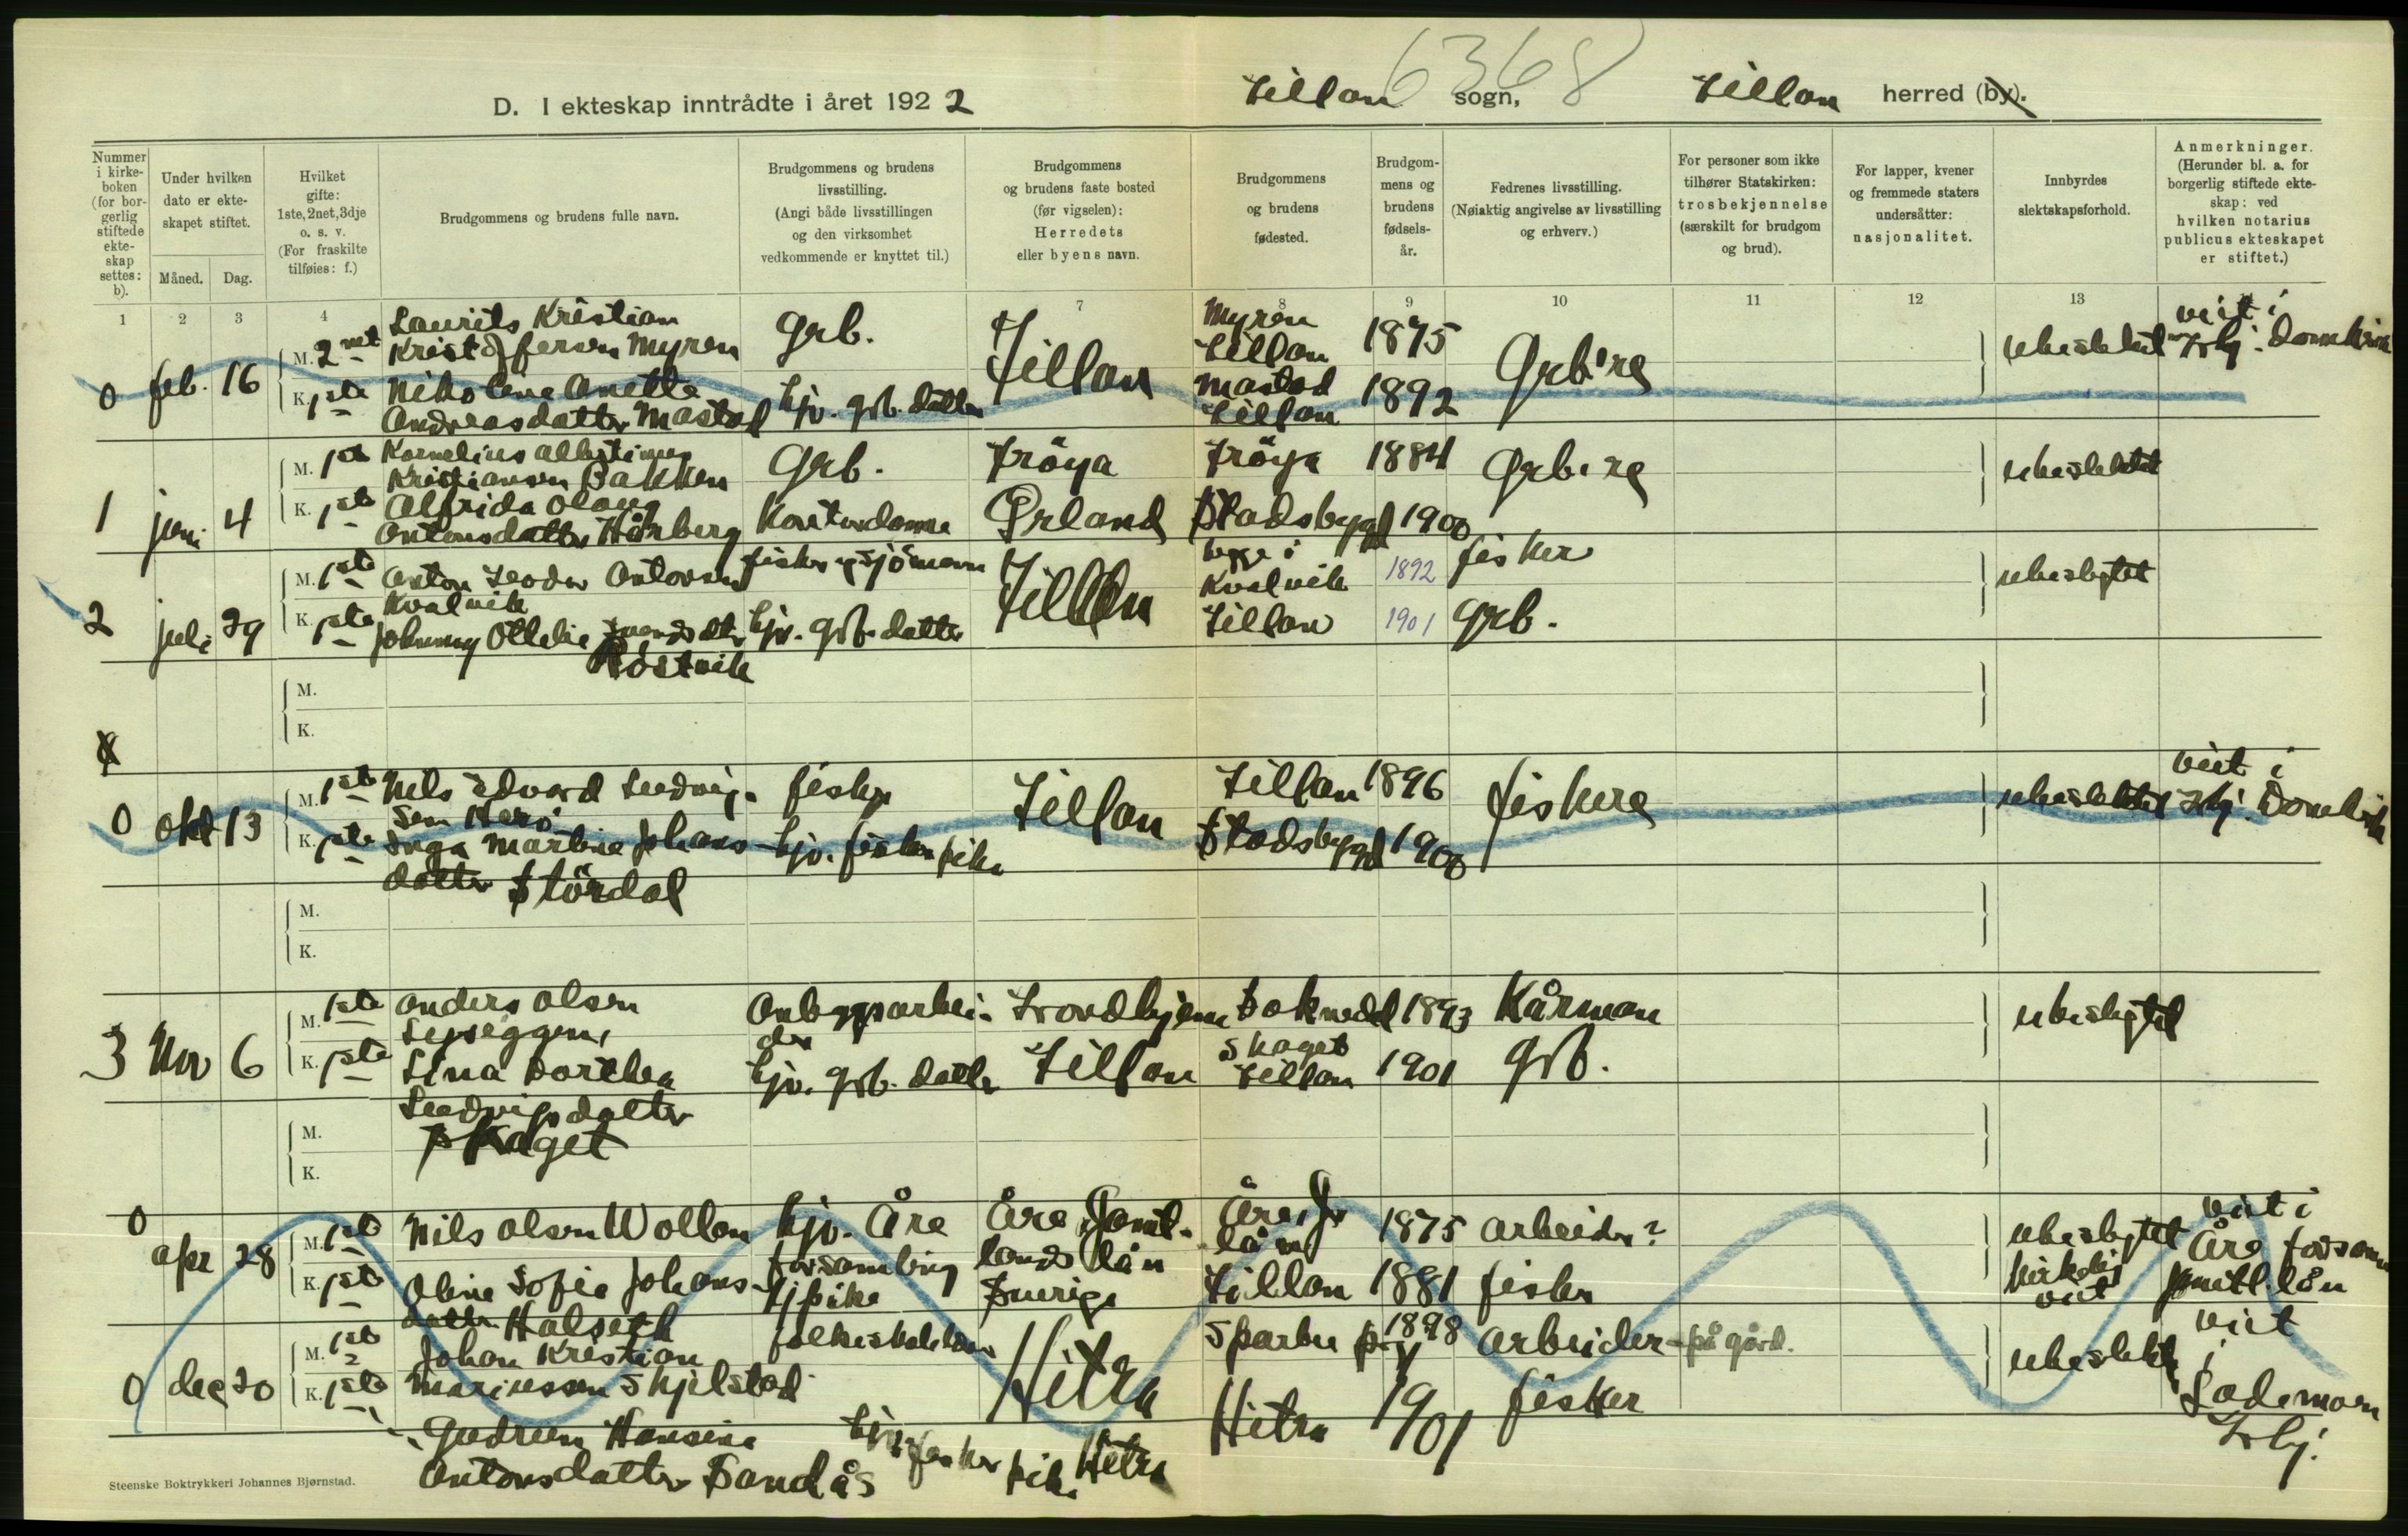 6368
D. I ekteskap inntrådte i året 1922 Fillan sogn, Fillan herred (by).
Nummer i kirkeboken (for borgerlig stiftede ekteskap settes: b).
Under hvilken dato er ekteskapet stiftet.
Måned. Dag.
Hvilket gifte: 1ste, 2net, 3dje o. s. v. (For fraskilte tilføies: f.)
Brudgommens og brudens fulle navn.
Brudgommens og brudens livsstilling. (Angi både livsstillingen og den virksomhet vedkommende er knyttet til.)
Brudgommens og brudens faste bosted (før vigselen): Herredets eller byens navn.
Brudgommens og brudens fødested.
Brudgommens og brudens fødselsår.
Fedrenes livsstilling. (Nøiaktig angivelse av livsstilling og erhverv.)
For personer som ikke tilhører Statskirken: trosbekjennelse (særskilt for brudgom og brud).
For lapper, kvener og fremmede staters undersåtter: nasjonalitet.
Innbyrdes slektskapsforhold.
Anmerkninger. (Herunder bl. a. for borgerlig stiftede ekteskap: ved hvilken notarius publicus ekteskapet er stiftet.)
1 2 3 4 7 8 9 10 11 12 13
0 feb. 16 M. 2net Laurits Kristian Kristoffersen Myren Grb. Fillan Myren Fillan 1875 Grb.re ubeslektet viet i Trhj. Domkirke
K. 1ste Nikoline Anette Andreasdatter Mastad hjv. grb. datter Mastad Fillan 1892
1 juni 4 M. 1ste Kornelius Albertinus Kristiansen Bakken Grb. Frøya Frøya 1884 Grb.re ubeslektet
K. 1ste Alfrida Olaug Antonsdatter Hårberg Kontordame Ørland Stadsbygd 1900
2 juli 29 M. 1ste Anton Teodor Antonsen Kvalvik fisker og sjömann Fillan begge i Kvalvik 1892 fisker ubeslegtet
K. 1ste Johanny Ottelie datter hjv. grb. datter Fillan 1901 Grb.
M.
K.
0 okt 13 M. 1ste Nils Edvard Ludvigsen Herö fisker Fillan Fillan 1896 fiskere ubeslektet viet i Trhj. Domkirke
K. 1ste Inga Martine Johansdatter Stördal hjv. fisker pike Stadsbygd 1900
M.
K.
3 Nov 6 M. 1ste Anders Olsen Anleggsarbeider Trondhjem Soknedal 1893 Kårman ubeslegtet
K. 1ste Lina Dorthea Ludvigsdatter Skaget hjv. grb. datter Fillan Skaget Fillan 1901 grb.
M.
K.
0 apr 28 M. 1ste Nils Olsen Wollan hjv. Åre forsamling Åre Jämtlands län Sverige Åre, J. län 1875 Arbeider? ubeslegtet kirkelig viet viet i Åre forsam Jämtl län
K. 1ste Oline Sofie Johansdatter Halseth hj pike Fillan 1881 fisker
0 des 20 M. 1ste Johan Kristian Mariussen Skjelstad Hitra Sparbu 1898 Arbeider på gård. ubeslektet viet i Lademoen Trhj.
K. 1ste Gudrun Hansine Antonsdatter Sandås hjv. fisker pike Hitra Hitra 1901 fisker
Steenske Boktrykkeri Johannes Bjørnstad.